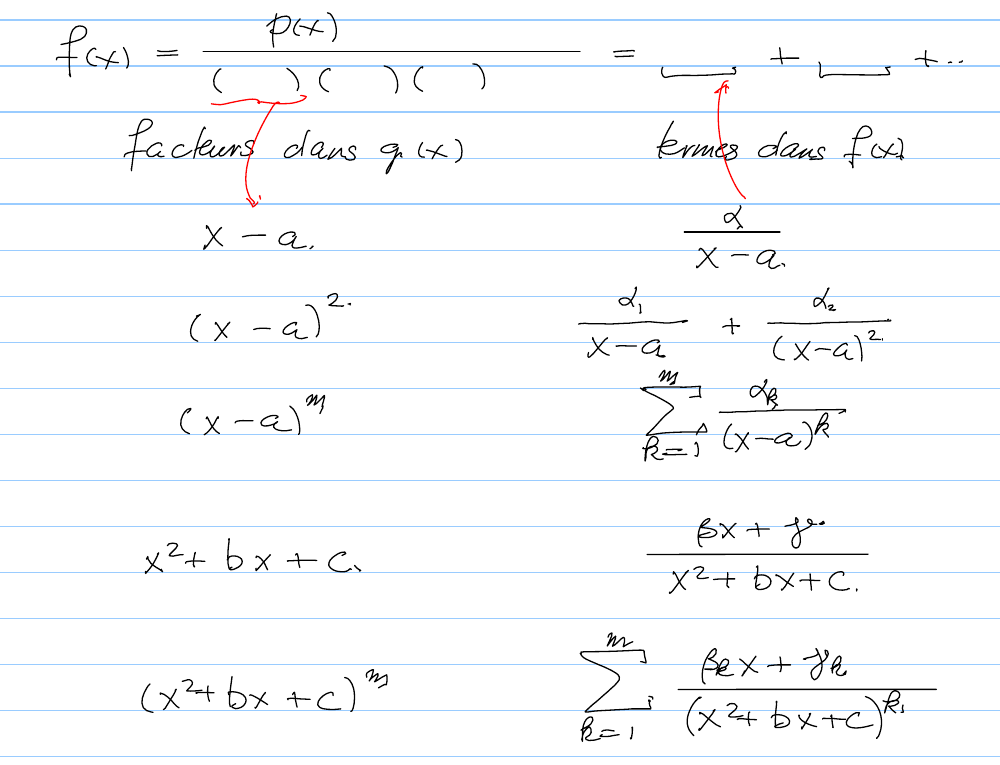 f(x) = p(x) / ( ) ( ) ( ) = ⎵ + ⎵ + ..
facteurs dans q(x) termes dans f(x)
x - a. α / (x - a.)
(x - a)^2. α_1 / (x - a) + α_2 / (x - a)^2.
(x - a)^m ∑_{k=1}^{m} α_k / (x - a)^k
x^2 + bx + c. (βx + γ) / (x^2 + bx + c.)
(x^2 + bx + c)^m ∑_{k=1}^{m} (β_k x + γ_k) / (x^2 + bx + c)^k